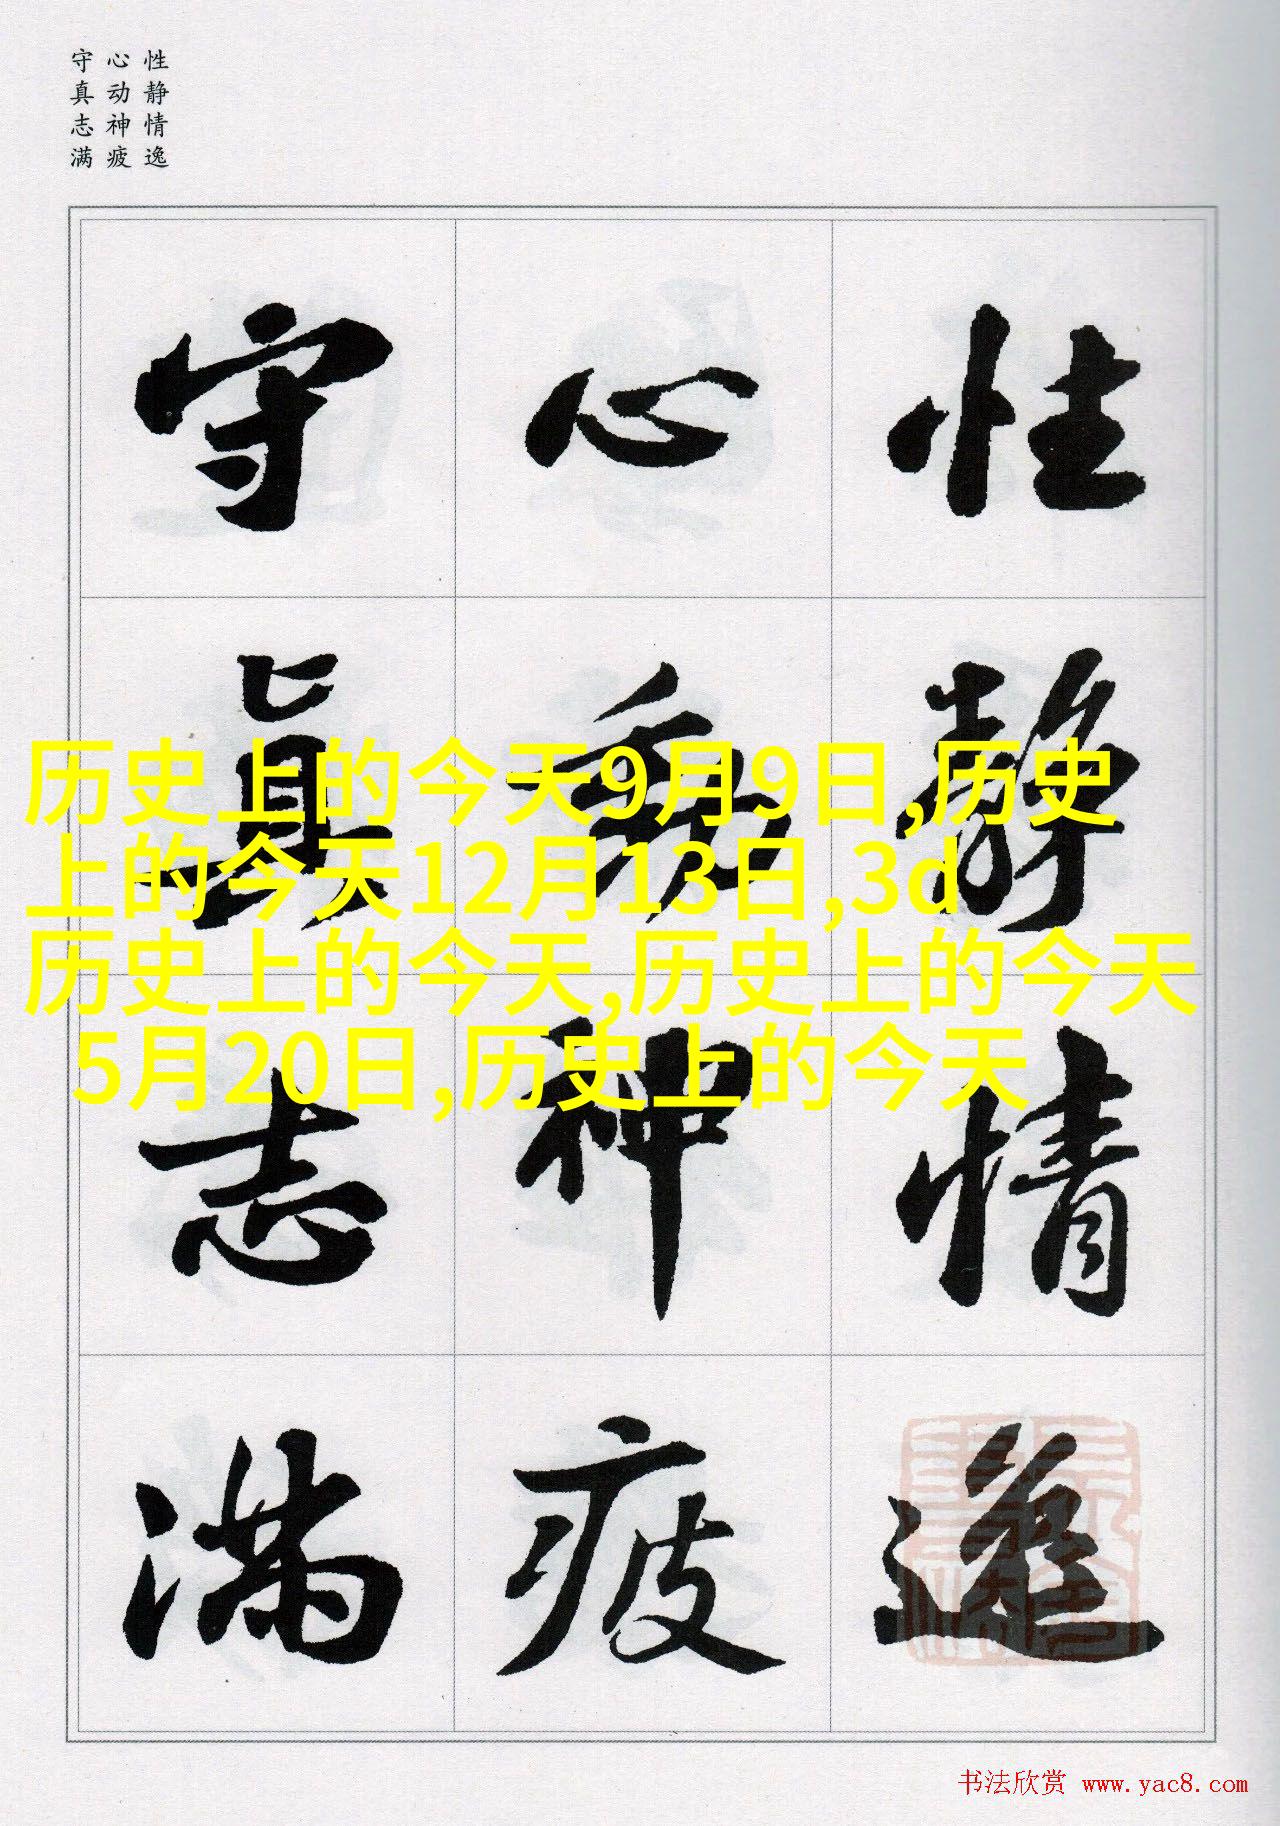 性静情逸
心动神疲
守真志满
性静情逸
心動神疲
守真志满
历史上的今天9月9日,历史
上的今天12月13日,3d
历史上的今天,历史上的今天
5月20日,历史上的今天
书法欣赏 www.yac8.com